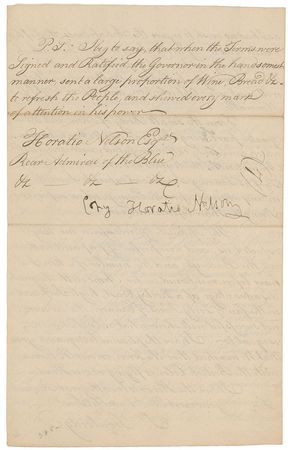 P.S. I beg to say, that when the Terms were
Signed and Ratified, the Governor in the handsomest
manner, sent a large proportion of Wine, Bread &c
to refresh the People, and shewed every mark
of attention in his power
Horatio Nelson Esqr
Rear Admiral of the Blue
&c — &c — &c
Copy Horatio Nelson